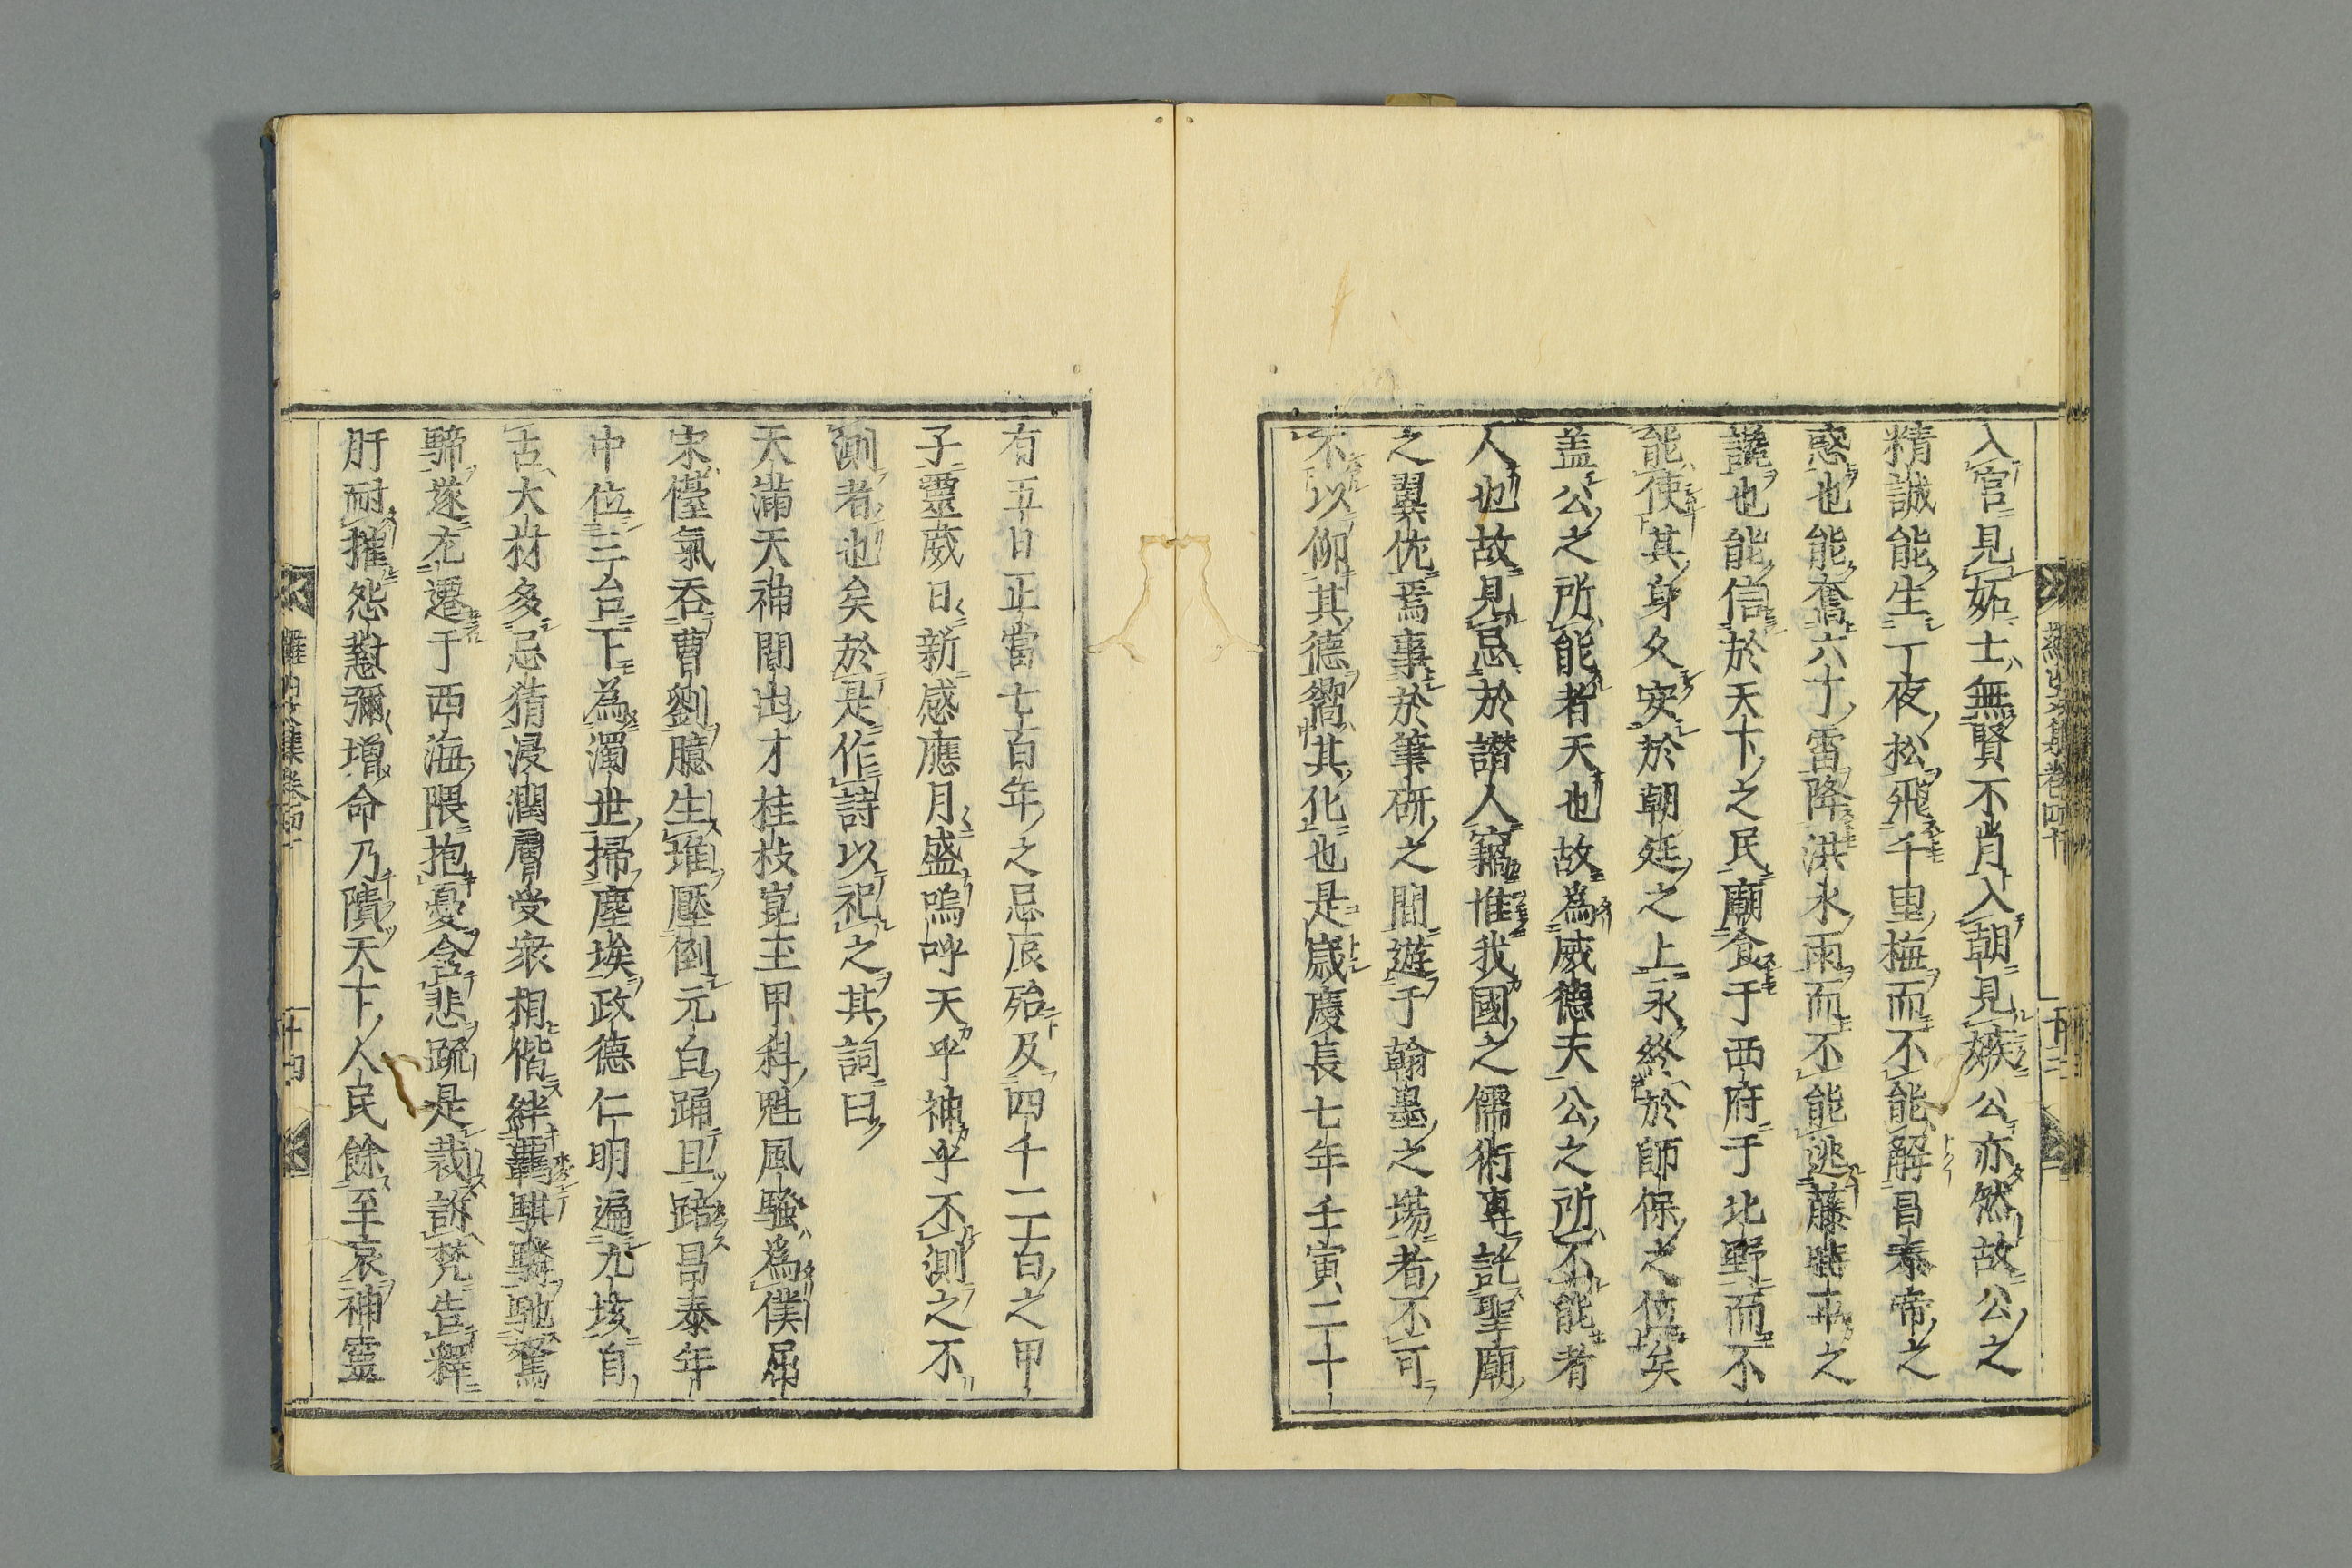 入宮見妬士無賢不肖入朝見嫉公亦然故公之
精誠能生一夜松飛千里梅而不能解昌泰帝之
惑也能奮六丁雷降洪水雨而不能逃藤時平之
讒也能信於天下之民廟食于西府于北野而不
能使其身久安於朝廷之上永終於師保之位矣
盖公之所能者天也故為威德天公之所不能者
人也故見忌於譖人竊惟我國之儒術專託聖廟
之翼佐焉事於筆研之間遊于翰墨之場者不可
不以仰其德嚮其化也是歳慶長七年壬寅二十
有五日正當七百年之忌辰殆及四千二百之甲
子靈威日新感應月盛嗚呼天乎神乎不測之不
測者也矣於是作詩以祀之其詞曰
天滿天神間出才桂枝嵬主甲科魁風騷為僕屈
宋儓氣呑曹劉臆生堆壓倒元白踊且蹄昌泰年
中位三台下為濁世掃塵埃政德仁明遍九垓自
古大材多忌猜浸潤膚受衆相偕絆羈騏驎馳駑
騑遂左遷于西海隈抱憂含悲疏是裁訴梵告釋
肝耐摧怨懟彌増命乃隤天下人民餘至哀神靈
羅山文集卷四十
十三
十四